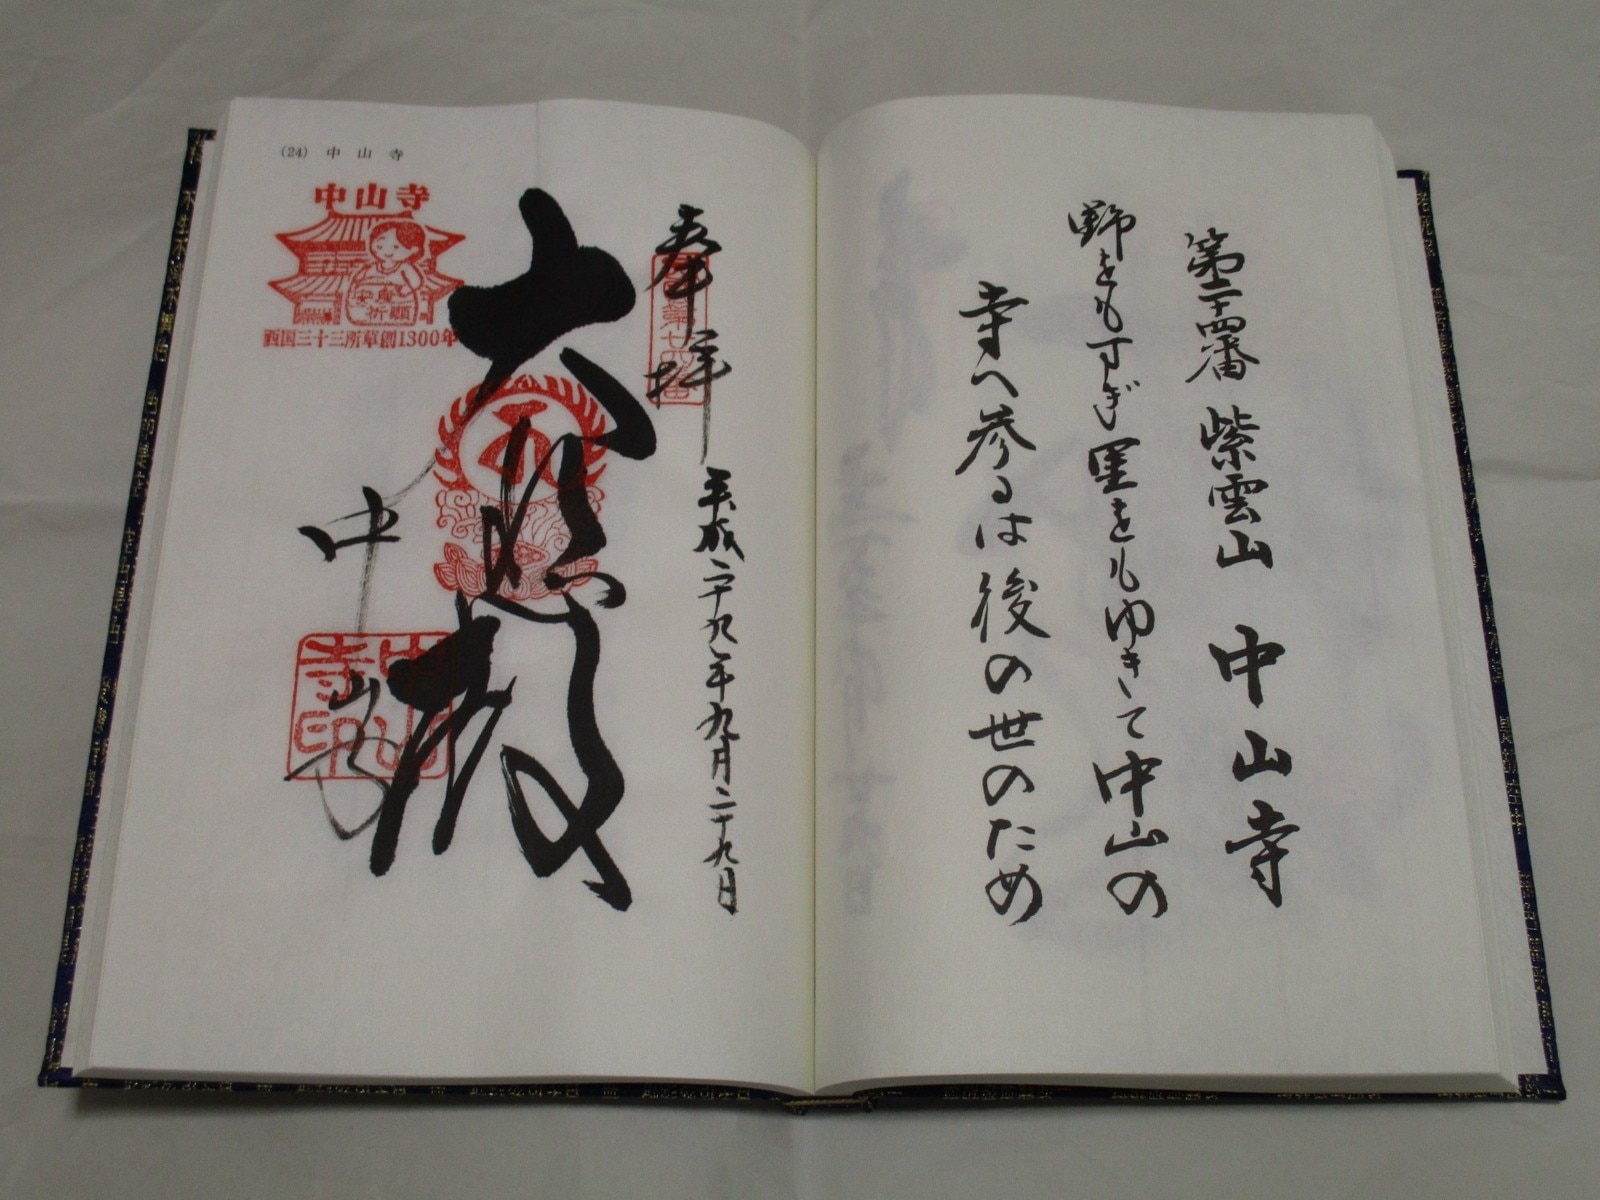 第二十四番 紫雲山 中山寺
野をもすぎ里をもゆきて中山の
寺へ参るは後の世のため
(24) 中山寺
奉拝 平成二十九年九月二十九日
大悲殿
中山寺
中山寺
安産
祈願
西国三十三所草創1300年
中山寺印